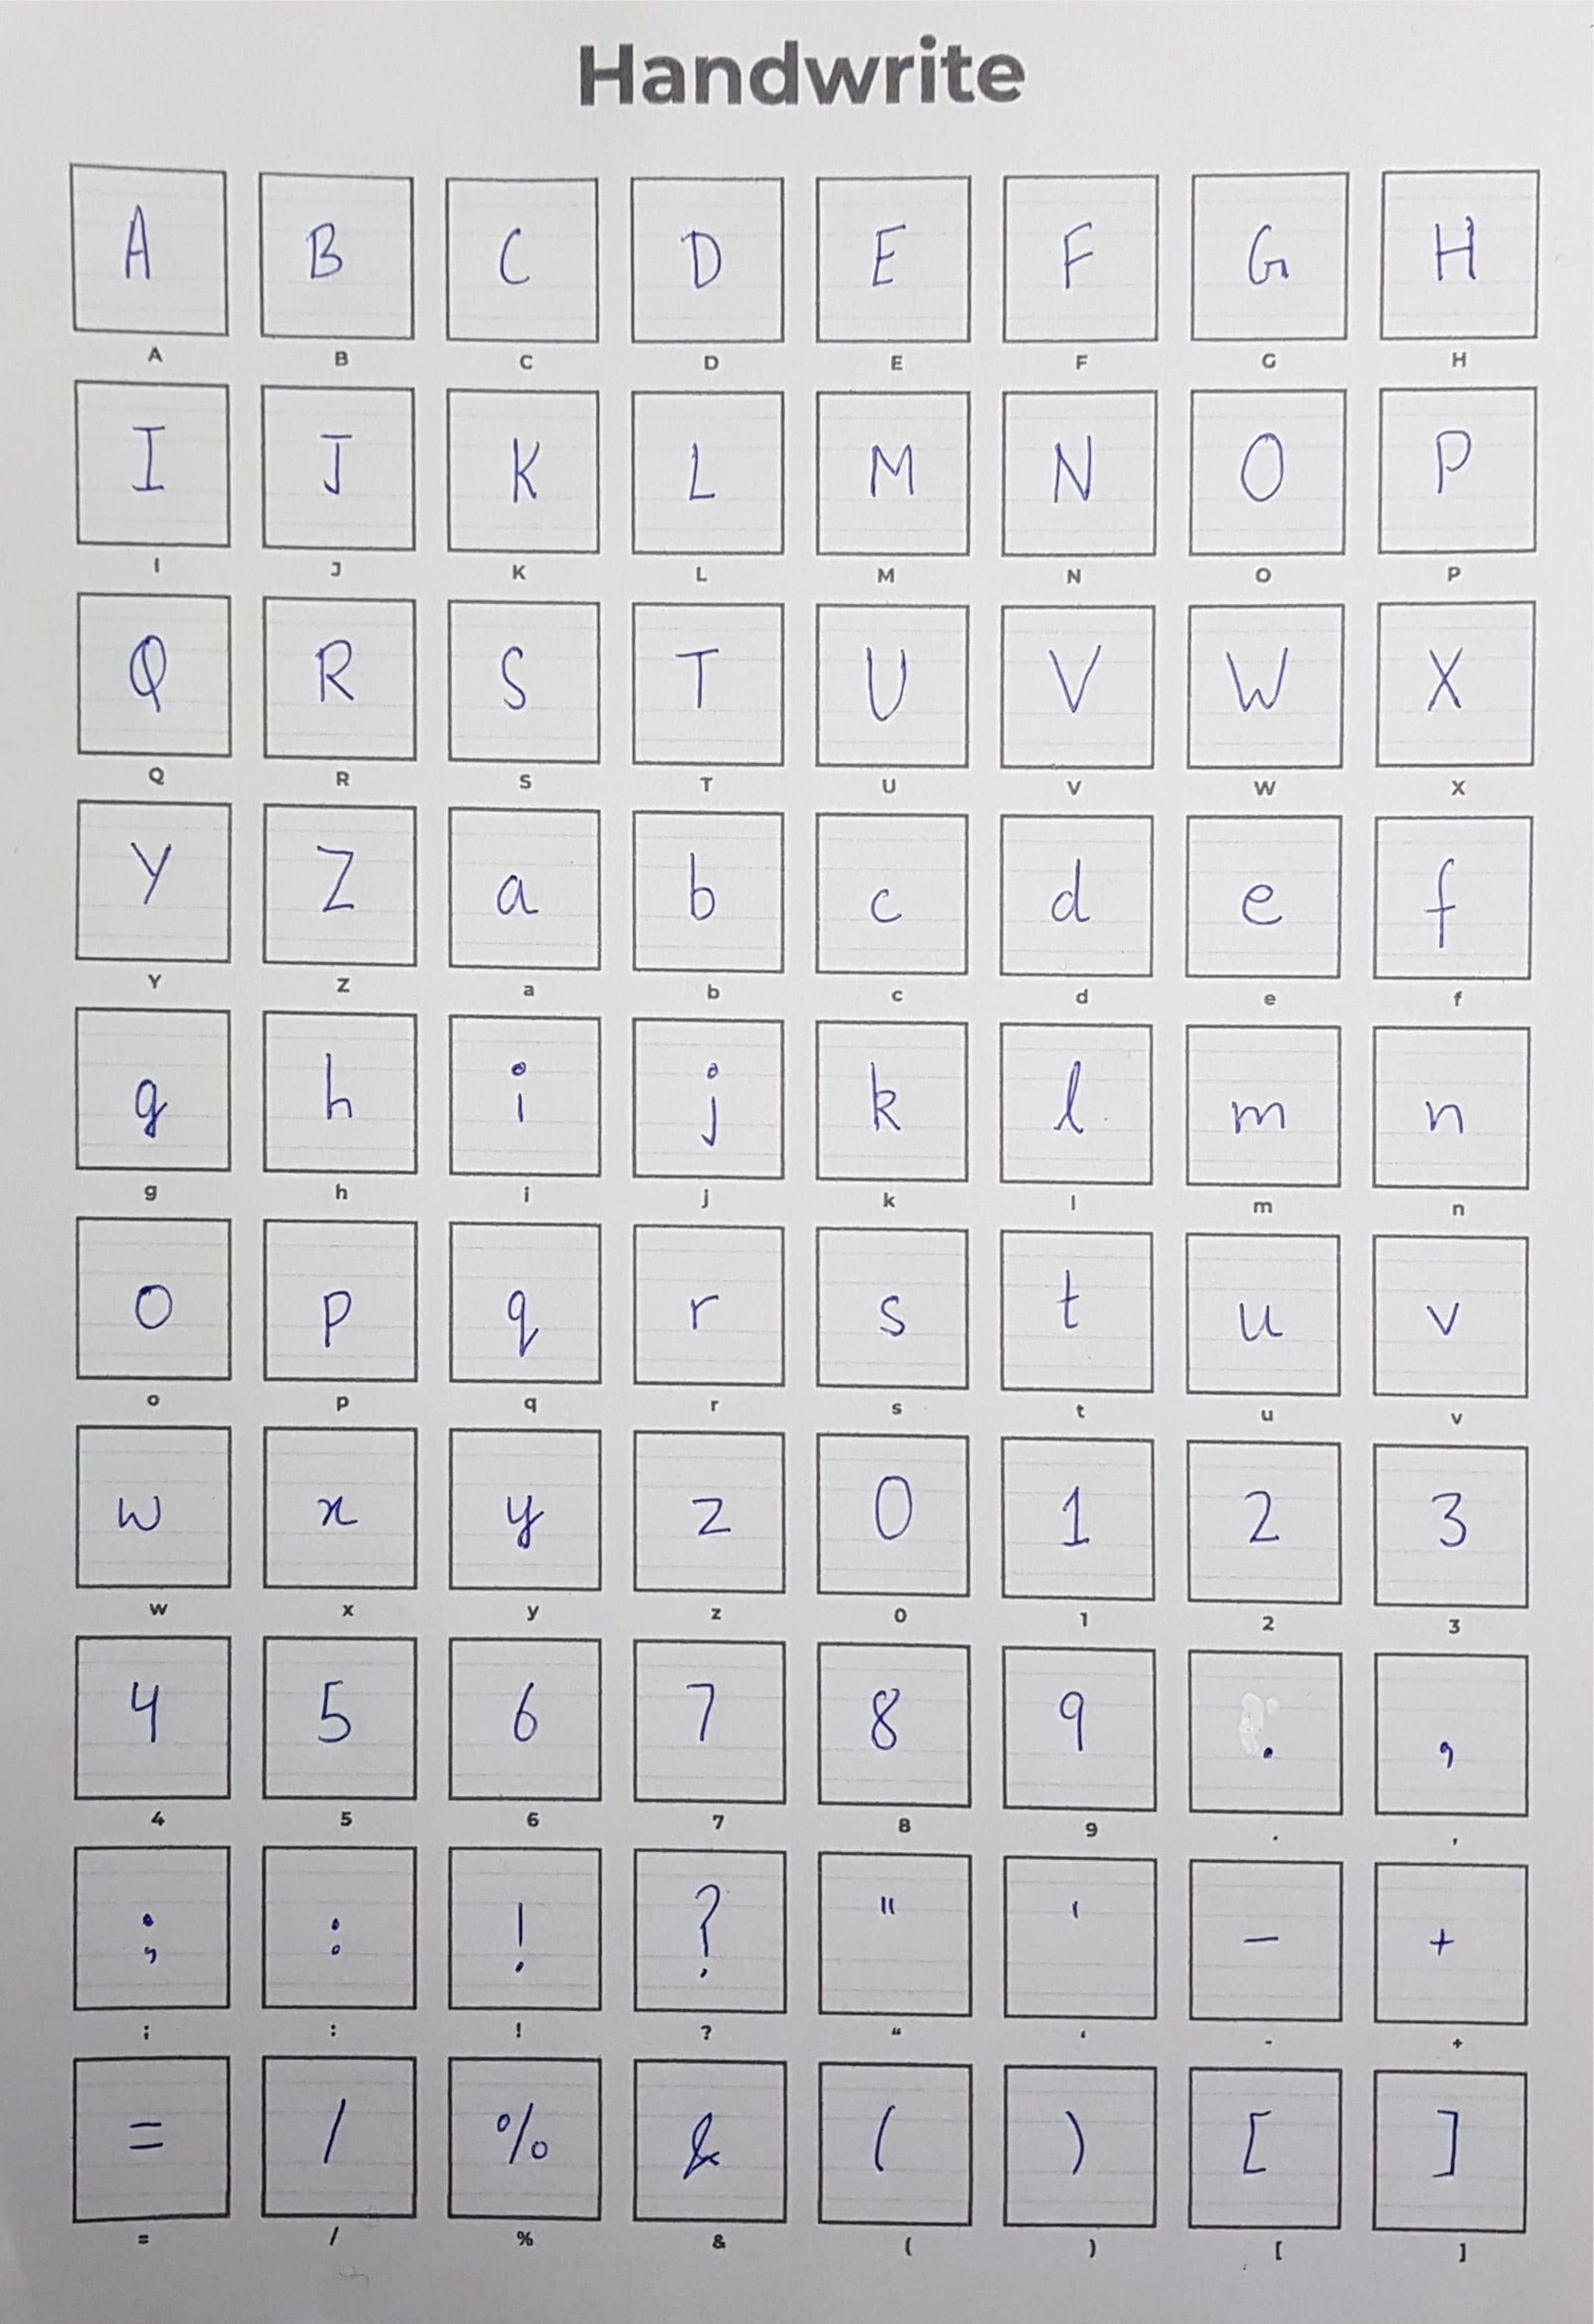 Handwrite
A B C D E F G H
A B C D E F G H
I J K L M N O P
I J K L M N O P
Q R S T U V W X
Q R S T U V W X
Y Z a b c d e f
Y Z a b c d e f
g h i j k l m n
g h i j k l m n
o p q r s t u v
o p q r s t u v
w x y z 0 1 2 3
w x y z 0 1 2 3
4 5 6 7 8 9 . ,
4 5 6 7 8 9 . ,
; : ! ? " ' - +
; : ! ? “ ‘ - +
= / % & ( ) [ ]
= / % & ( ) [ ]